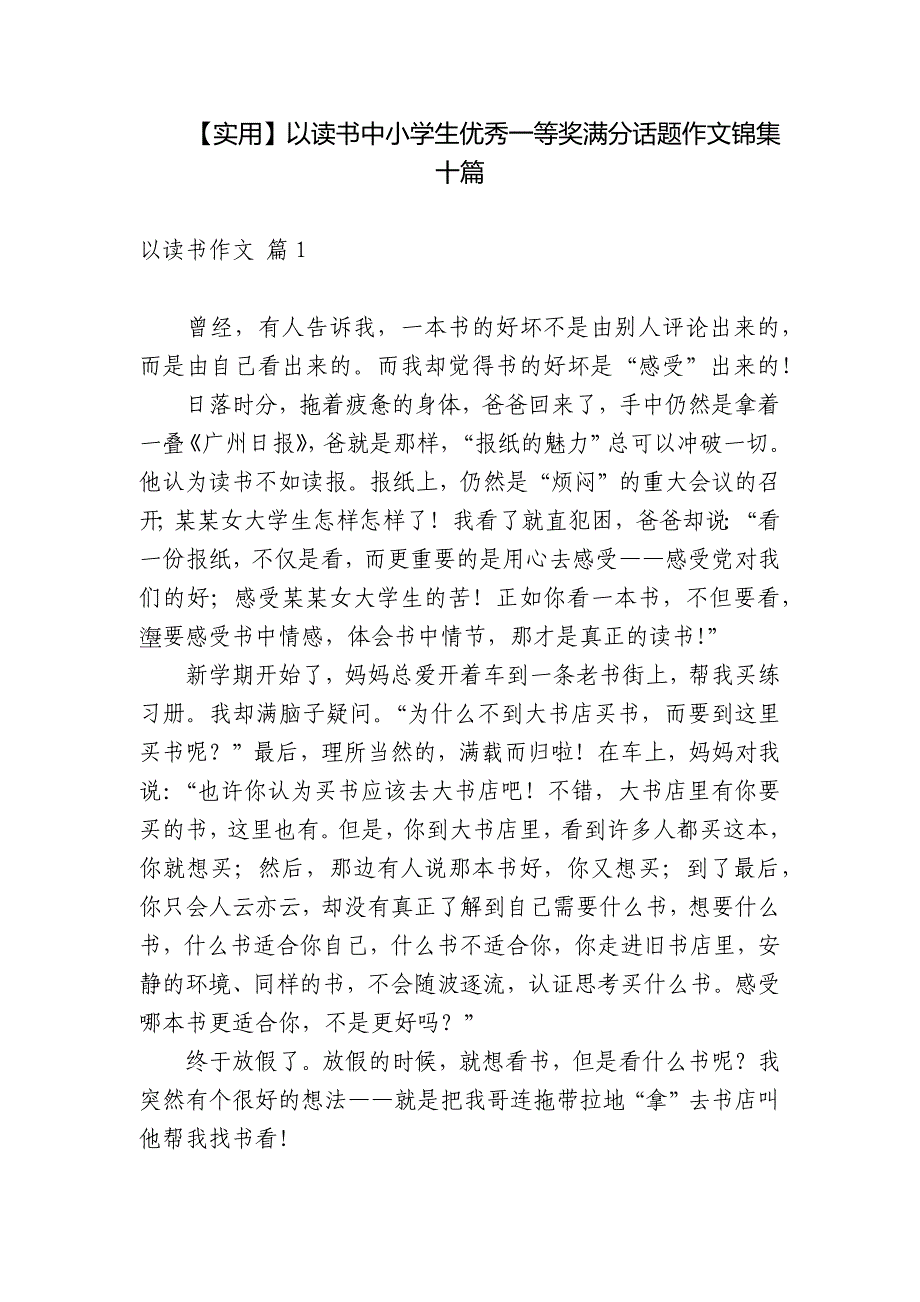 【实用】以读书中小学生优秀一等奖满分话题作文锦集
十篇
以读书作文 篇1
曾经，有人告诉我，一本书的好坏不是由别人评论出来的，
而是由自己看出来的。而我却觉得书的好坏是“感受”出来的！
日落时分，拖着疲惫的身体，爸爸回来了，手中仍然是拿着
一叠《广州日报》，爸就是那样，“报纸的魅力”总可以冲破一切。
他认为读书不如读报。报纸上，仍然是“烦闷”的重大会议的召
开；某某女大学生怎样怎样了！我看了就直犯困，爸爸却说：“看
一份报纸，不仅是看，而更重要的是用心去感受——感受党对我
们的好；感受某某女大学生的苦！正如你看一本书，不但要看，
要感受书中情感，体会书中情节，那才是真正的读书！”
新学期开始了，妈妈总爱开着车到一条老书街上，帮我买练
习册。我却满脑子疑问。“为什么不到大书店买书，而要到这里
买书呢？”最后，理所当然的，满载而归啦！在车上，妈妈对我
说：“也许你认为买书应该去大书店吧！不错，大书店里有你要
买的书，这里也有。但是，你到大书店里，看到许多人都买这本，
你就想买；然后，那边有人说那本书好，你又想买；到了最后，
你只会人云亦云，却没有真正了解到自己需要什么书，想要什么
书，什么书适合你自己，什么书不适合你，你走进旧书店里，安
静的环境、同样的书，不会随波逐流，认证思考买什么书。感受
哪本书更适合你，不是更好吗？”
终于放假了。放假的时候，就想看书，但是看什么书呢？我
突然有个很好的想法——就是把我哥连拖带拉地“拿”去书店叫
他帮我找书看！